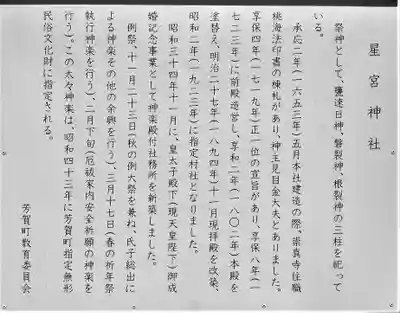 星宮神社
祭神として、甕速日神、磐裂神、根裂神の三柱を祀って
いる。
承応二年(一六五三年)五月本社建造の際、崇真寺住職
桃海法印書の棟札があり、神主見目金大夫とありました。
享保四年(一七一九年)正一位の宣旨があり、享保八年(一
七二三年)に前殿造営し、享和二年(一八〇二年)本殿を
塗替え、明治二十七年(一八九四年)十一月現拝殿を改築、
昭和二年(一九二三年)に指定村社となりました。
昭和三十四年十一月に、皇太子殿下(現天皇陛下)御成
婚記念事業として神楽殿付社務所を新築しました。
例祭、十一月二十三日(秋の例大祭を兼ね、氏子総出に
よる神楽その他の余興を行う)、三月十七日(春の祈年祭
執行神楽を行う)、二月下旬(厄祓家内安全祈願の神楽を
行う)。この太々神楽は、昭和四十三年に芳賀町指定無形
民俗文化財に指定される。
芳賀町教育委員会